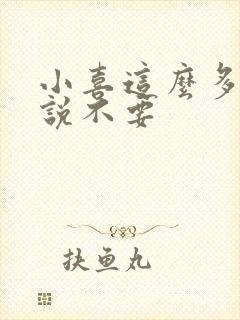 小喜這麼多
說不要
扶魚丸